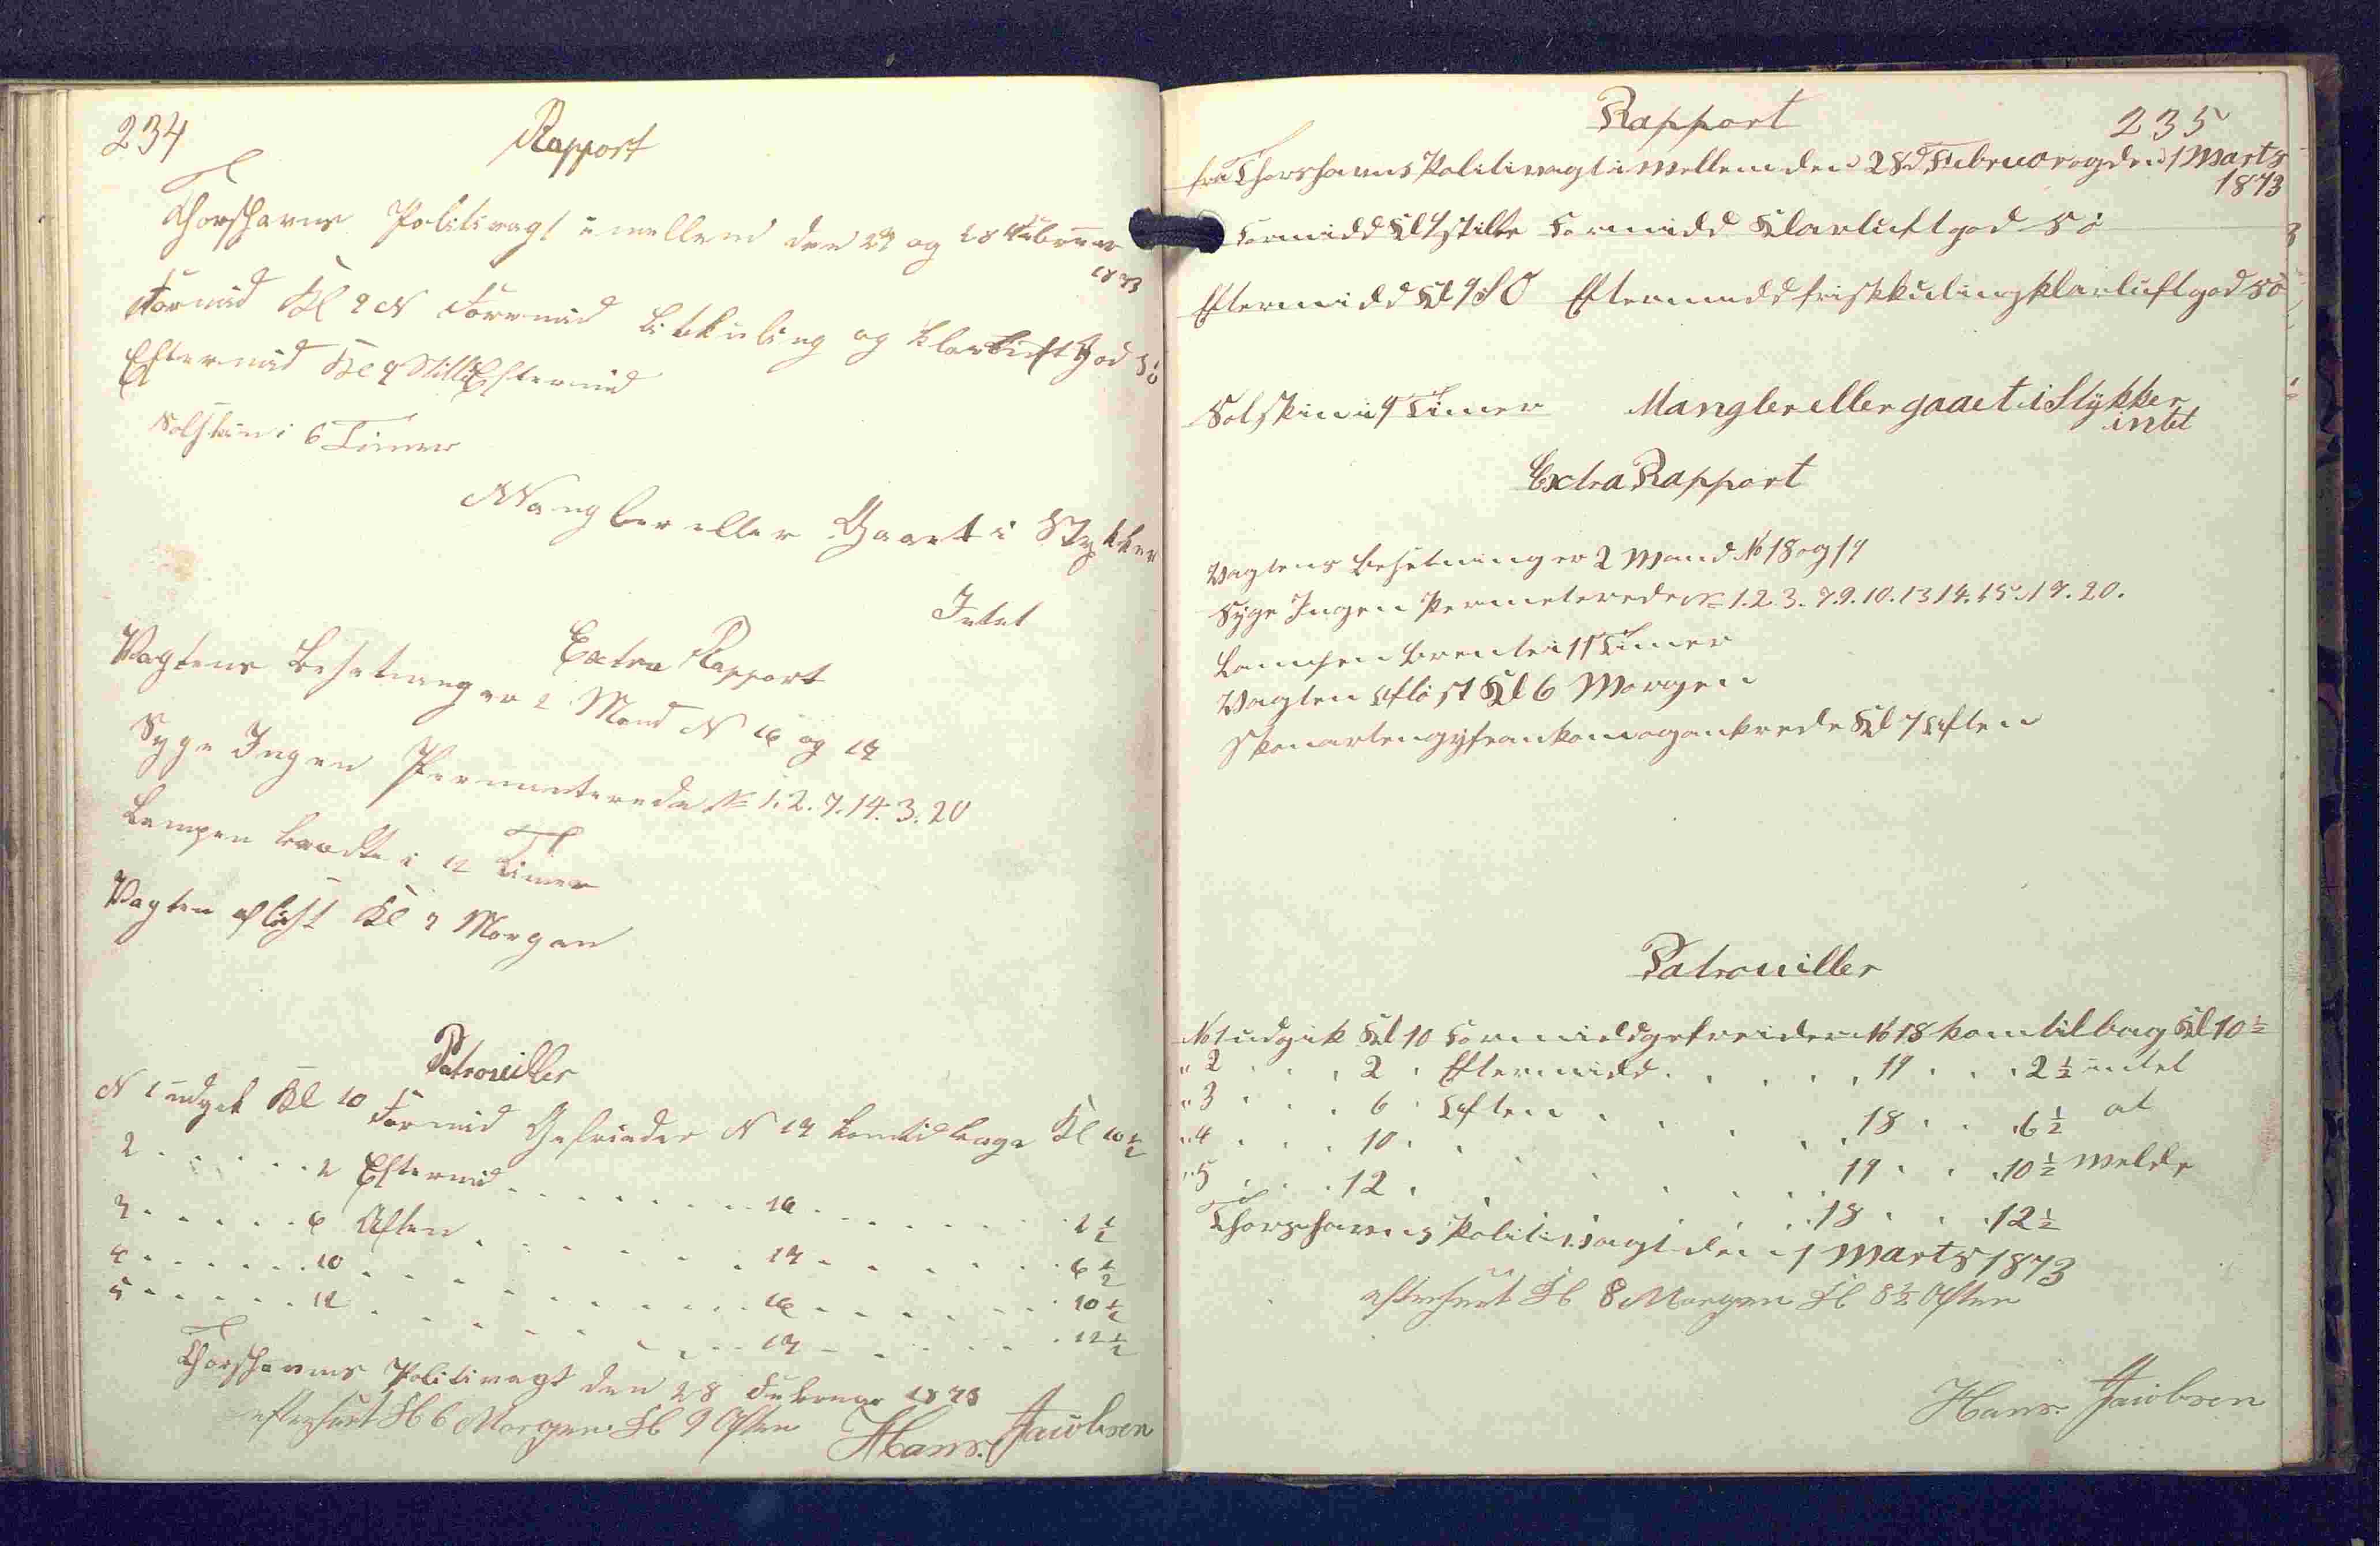 234
Rapport
Thorshavns Politivagt imellem den 27 og 28 Februar
1873
Formid Kl 9 N Formid Litkuling og klarluft God Sö
Eftermid Kl 9 Stille Eftermid
Solskin i 6 Timer
Mangler eller Gaaet i Stykker
Intet
Extra Rapport
Vagtens Besetning er 2 Mand N 16 og 17
Syge Ingen Permenterede № 1.2.7.14.3.20
Lampen brendte i 12 Timer
Vagten aflöst Kl 7 Morgen
Patrouiller
N 1 udgik Kl 10 Formid Gefreider N 17 kom tilbage Kl 10 ½
2 . . . . . . 2 Eftermid . . . . . . . . 16 . . . . . . . 2 ½
3 . . . . . 6 Aften . . . . . . . 17 . . . . . . 6 ½
4 . . . . . . 10 . . . . . . . . . . 16 . . . . . . . 10 ½
5 . . . . . . 12 . . . . . . . . . 17 . . . . . . 12 ½
Thorshavns Politivagt den 28 Februar 1873
efterseet Kl 6 Morgen Kl 9 Aften Hans. Jacobsen
235
Rapport
fra Thorshavns Politivagt imellem den 28d Februar og den 1 Marts
1873
Formidd Kl 9 stille Formidd Klarluft god Sö
Eftermidd Kl 9 SO Eftermidd frisk kuling klarluft god Sö
Solskin i 9 Timer Mangler eller gaaet i Stykker
intet
Extra Rapport
Vagtens Besetning er 2 Mand № 18 og 19
Syge Ingen Permeterede № 1.2.3.7.9.10.13 14.15.19.20.
Lampen brente i 11 Timer
Vagten Aflöst Kl 6 Morgen
Skonarten kom og ankrede Kl 7 Aften
Patrouiller
№ 1 udgik Kl 10 Formidd gefreider № 18 kom tilbag Kl 10 ½
" 2 . . . 2 . Eftermidd . . . . . 19 . . . 2 ½ intet
" 3 . . . 6 . Aften . . . . . 18 . . . 6 ½ at
" 4 . . . 10 . . . . . . . 19 . . . 10 ½ melde
" 5 . . . 12 . . . . . . . 18 . . . 12 ½
Thorshavns Politivagt den 1 Marts 1873
efterseet Kl 8 Morgen Kl 8 ½ Aften
Hans. Jacobsen